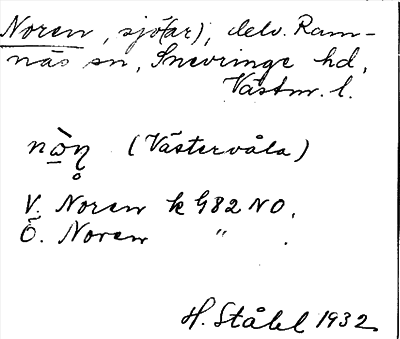 Noren, sjö(ar), delv. Ram-
näs sn, Snevringe hd,
Västm. l.
nò̱n̥ (Västervåla)
V. Noren k G82 NO.
Ö. Noren " .
H. Ståhl 1932